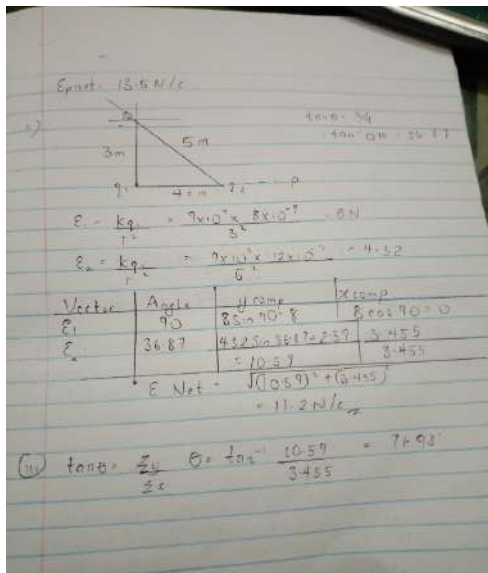 Epnet = 13.5 N/c
ii)
Q
3m
5m
q₁
4m
q₂
P
tanθ = 3/4
36.87
E₁ = kq₁/r² = 9×10⁹ × 8×10⁻⁹/3² = 8N
E₂ = kq₂/r² = 9×10⁹ × 12×10⁻⁹/5² = 4.32
Vector Angle y comp x comp
E₁ 90 8Sin90=8 8cos90=0
E₂ 36.87 4.32Sin36.87=2.59 3.455
= 10.59 3.455
E Net = √(10.59)² + (3.455)²
= 11.2 N/c
iii) tanθ = Σy/Σx θ = tan⁻¹ 10.59/3.455 = 71.93